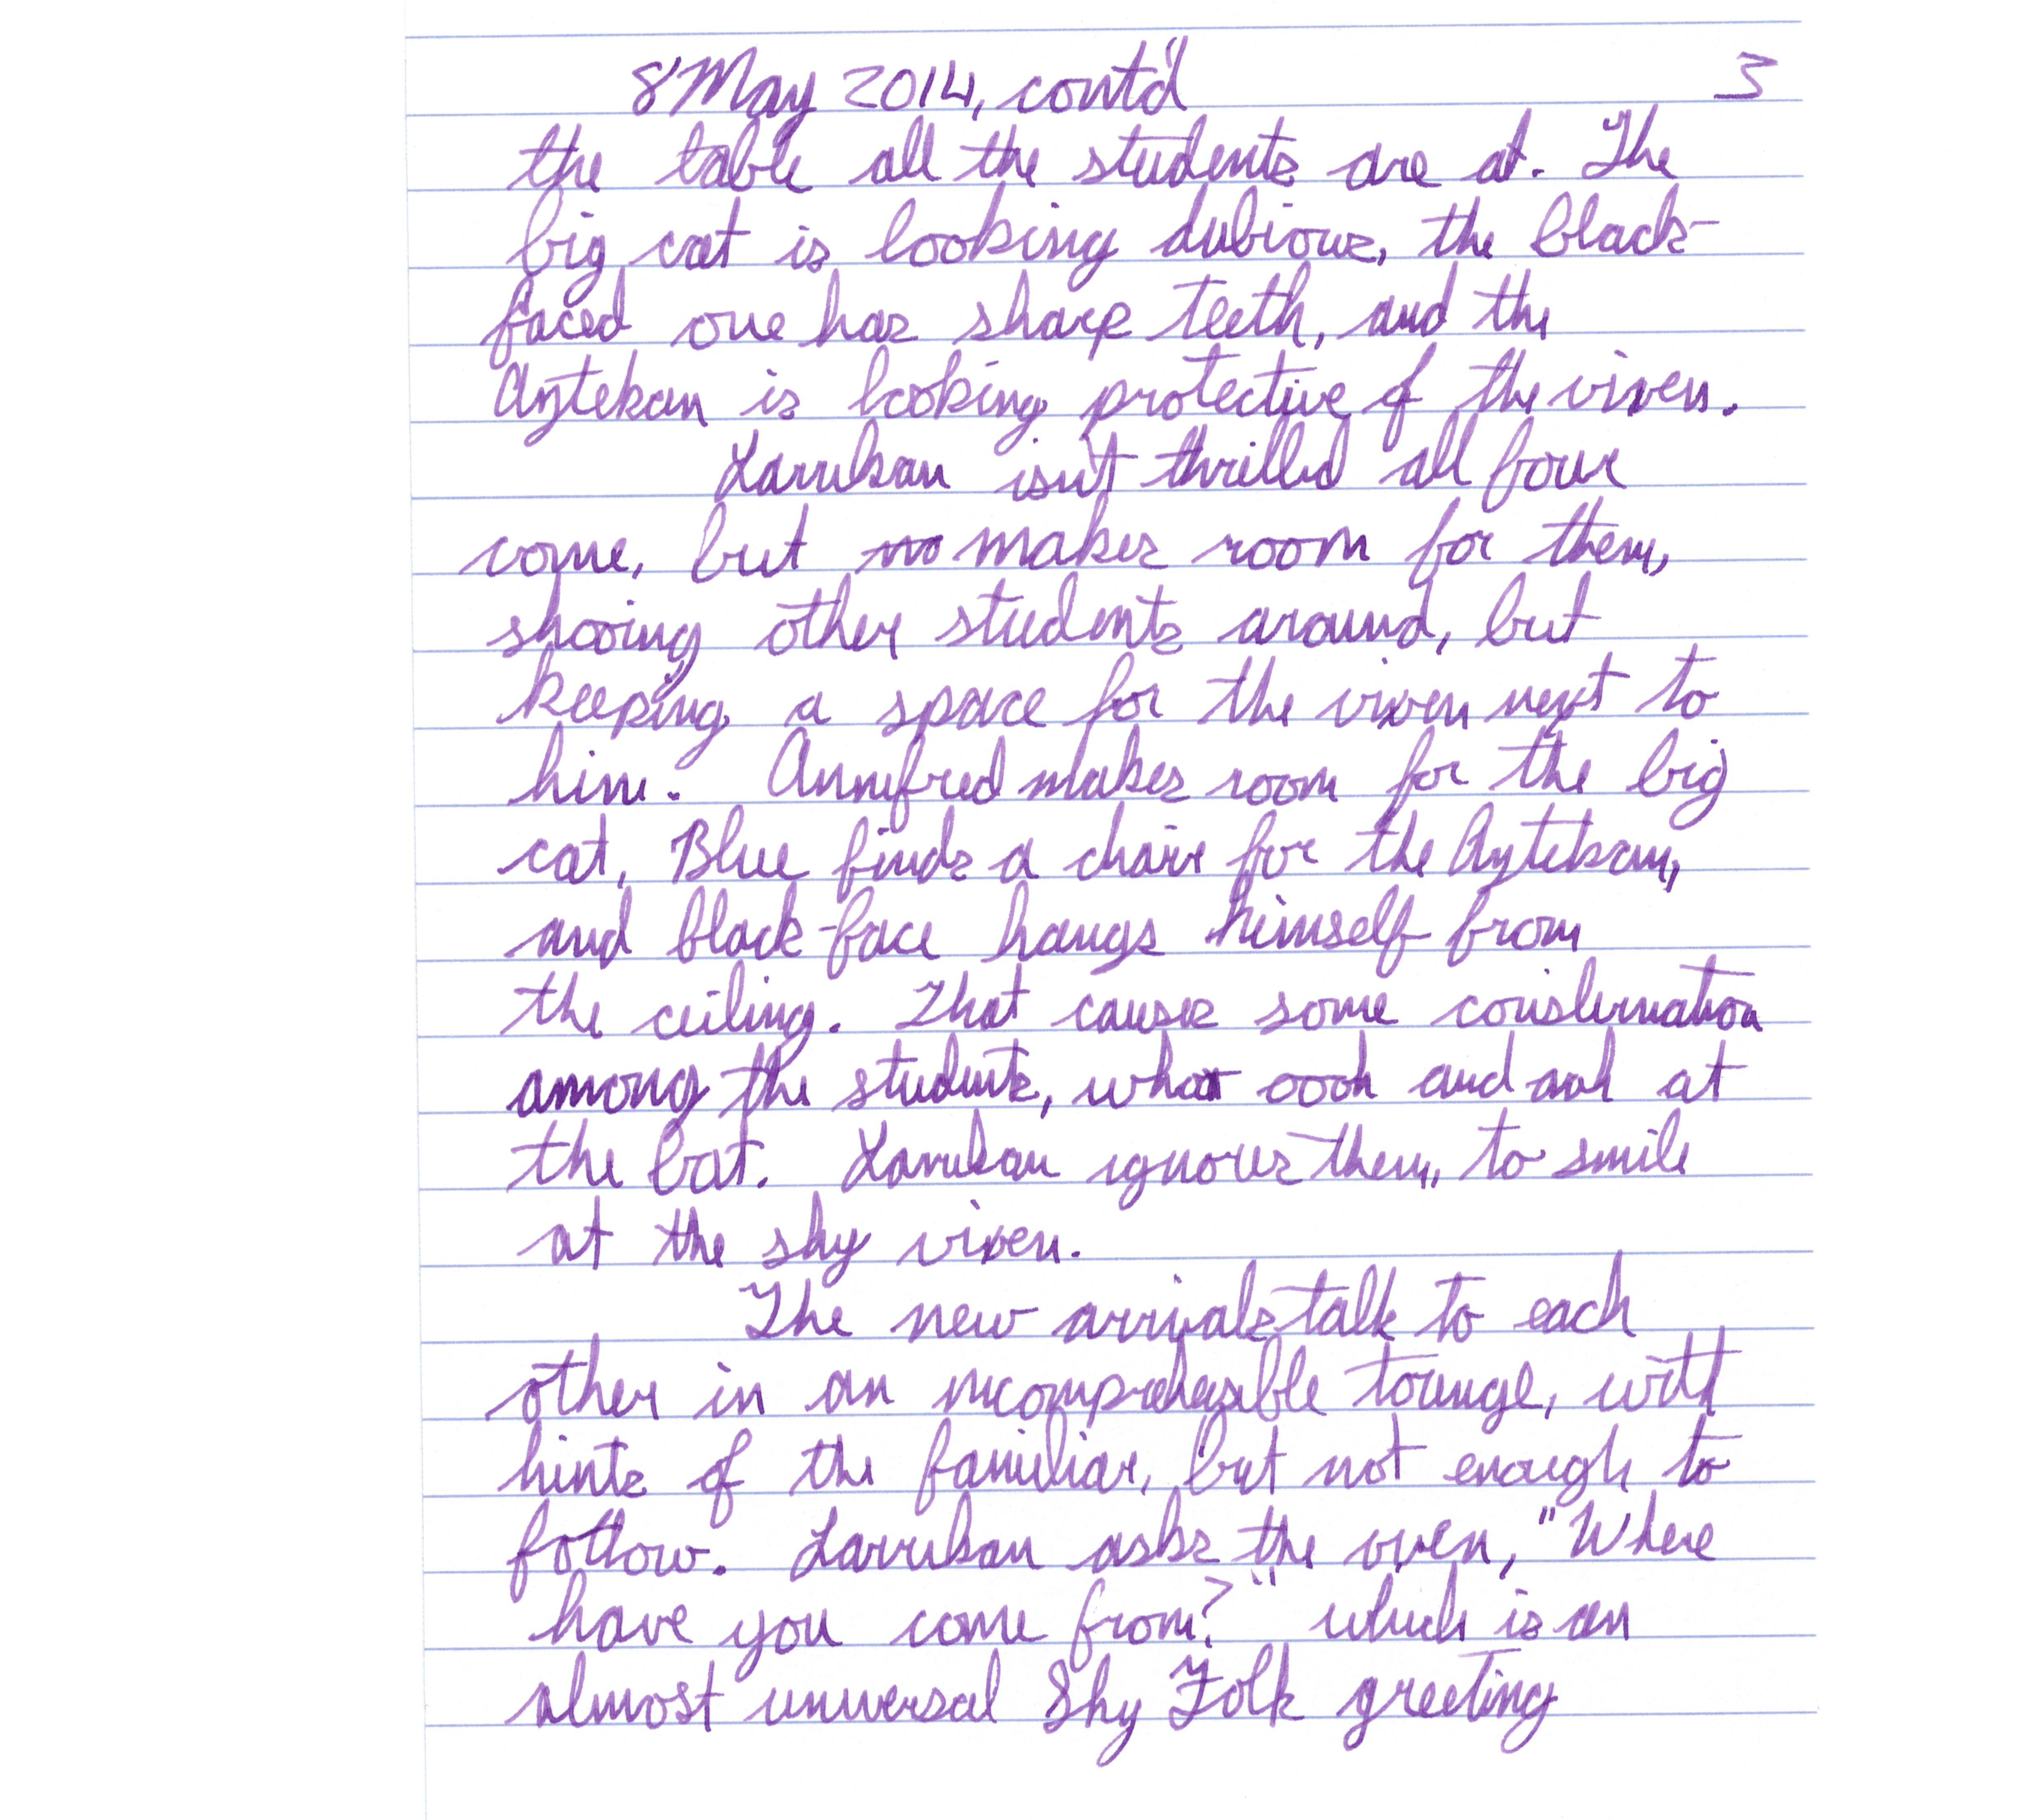 8 May 2014, cont'd 3
the table all the students are at. The
big cat is looking dubious, the black-
faced one has sharp teeth, and the
Aztekan is looking protective of the vixen.
Larrikan isn't thrilled all four
come, but no makes room for them,
shooing other students around, but
keeping a space for the vixen next to
him. Annifred makes room for the big
cat, Blue finds a chair for the Aztekan,
and black-face hangs himself from
the ceiling. That causes some consternation
among the students, who oooh and aah at
the bat. Larrikan ignores them, to smile
at the shy vixen.
The new arrivals talk to each
other in an incomprehensible tounge, with
hints of the familiar, but not enough to
follow. Larrikan asks the vixen, "Where
have you come from?" which is an
almost universal Shy Folk greeting